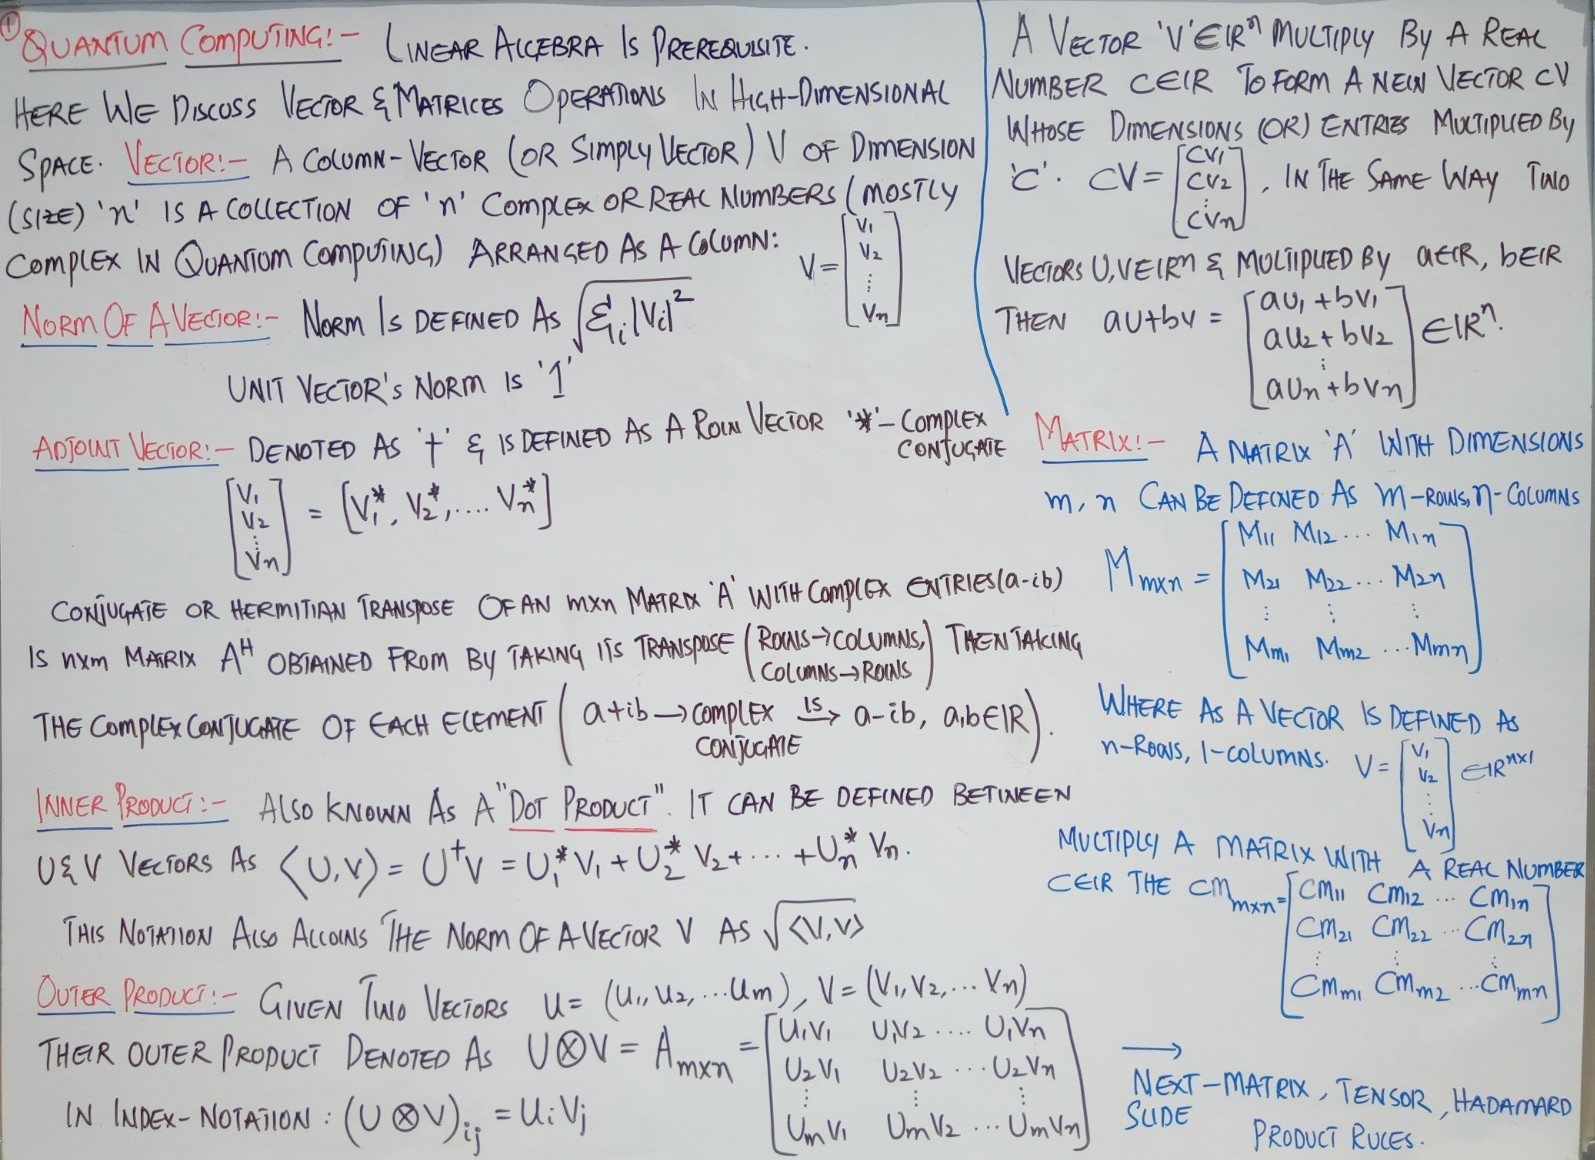 ①
QUANTUM COMPUTING:- LINEAR ALGEBRA IS PREREQUISITE.
HERE WE DISCUSS VECTOR & MATRICES OPERATIONS IN HIGH-DIMENSIONAL
SPACE. VECTOR:- A COLUMN-VECTOR (OR SIMPLY VECTOR) V OF DIMENSION
(SIZE) 'n' IS A COLLECTION OF 'n' COMPLEX OR REAL NUMBERS (MOSTLY
COMPLEX IN QUANTUM COMPUTING) ARRANGED AS A COLUMN: V = [V1
V2
⋮
Vn]
NORM OF A VECTOR:- NORM IS DEFINED AS √Σi|Vi|²
UNIT VECTOR'S NORM IS '1'
ADJOINT VECTOR:- DENOTED AS '†' & IS DEFINED AS A ROW VECTOR '*'-COMPLEX
CONJUGATE
[V1
V2
⋮
Vn] = [V1*, V2*, .... Vn*]
CONJUGATE OR HERMITIAN TRANSPOSE OF AN mxn MATRIX 'A' WITH COMPLEX ENTRIES(a-ib)
IS nxm MATRIX A^H OBTAINED FROM BY TAKING ITS TRANSPOSE (ROWS→COLUMNS,
COLUMNS→ROWS) THEN TAKING
THE COMPLEX CONJUGATE OF EACH ELEMENT (a+ib → COMPLEX
CONJUGATE IS→ a-ib, a,b∈IR).
INNER PRODUCT:- ALSO KNOWN AS A "DOT PRODUCT". IT CAN BE DEFINED BETWEEN
U & V VECTORS AS ⟨U,V⟩ = U†V = U1*V1 + U2*V2 + ... + Un*Vn.
THIS NOTATION ALSO ALLOWS THE NORM OF A VECTOR V AS √⟨V,V⟩
OUTER PRODUCT:- GIVEN TWO VECTORS U = (U1, U2, ... Um), V = (V1, V2, ... Vn)
THEIR OUTER PRODUCT DENOTED AS U⊗V = Amxn = [U1V1 U1V2 .... U1Vn
U2V1 U2V2 ... U2Vn
⋮ ⋮ ⋮
UmV1 UmV2 ... UmVn]
IN INDEX-NOTATION : (U⊗V)ij = UiVj
A VECTOR 'V'∈IR^n MULTIPLY BY A REAL
NUMBER C∈IR TO FORM A NEW VECTOR CV
WHOSE DIMENSIONS (OR) ENTRIES MULTIPLIED BY
'C'. CV = [CV1
CV2
⋮
CVn], IN THE SAME WAY TWO
VECTORS U,V∈IR^n & MULTIPLIED BY a∈IR, b∈IR
THEN aU+bV = [aU1+bV1
aU2+bV2
⋮
aUn+bVn] ∈IR^n.
MATRIX:- A MATRIX 'A' WITH DIMENSIONS
m, n CAN BE DEFINED AS m-ROWS, n-COLUMNS
Mmxn = [M11 M12 ... M1n
M21 M22 ... M2n
⋮ ⋮ ⋮
Mm1 Mm2 ... Mmn]
WHERE AS A VECTOR IS DEFINED AS
n-ROWS, 1-COLUMNS. V = [V1
V2
⋮
Vn] ∈IR^nx1
MULTIPLY A MATRIX WITH A REAL NUMBER
C∈IR THE CMmxn = [CM11 CM12 ... CM1n
CM21 CM22 ... CM2n
⋮ ⋮ ⋮
CMm1 CMm2 ... CMmn]
→
NEXT-MATRIX, TENSOR, HADAMARD
SLIDE PRODUCT RULES.